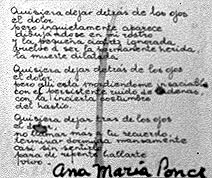 Quisiera dejar detrás de los ojos
el dolor
pero inquietamente aparece
dibujándose en mi rostro
y la pequeña cicatriz ignorada
vuelve a ser la permanente herida
la muerte dilatada
Quisiera dejar detrás de los ojos
el dolor
pero allí está mordiéndome insaciable
con el persistente ruido de cadenas
con la incierta costumbre
del hastío
Quisiera dejar tras de los ojos
el dolor
no llamar más tu recuerdo
terminar dormida mansamente
casi sin sentir
para de repente hallarte
vivo
Ana María Ponce